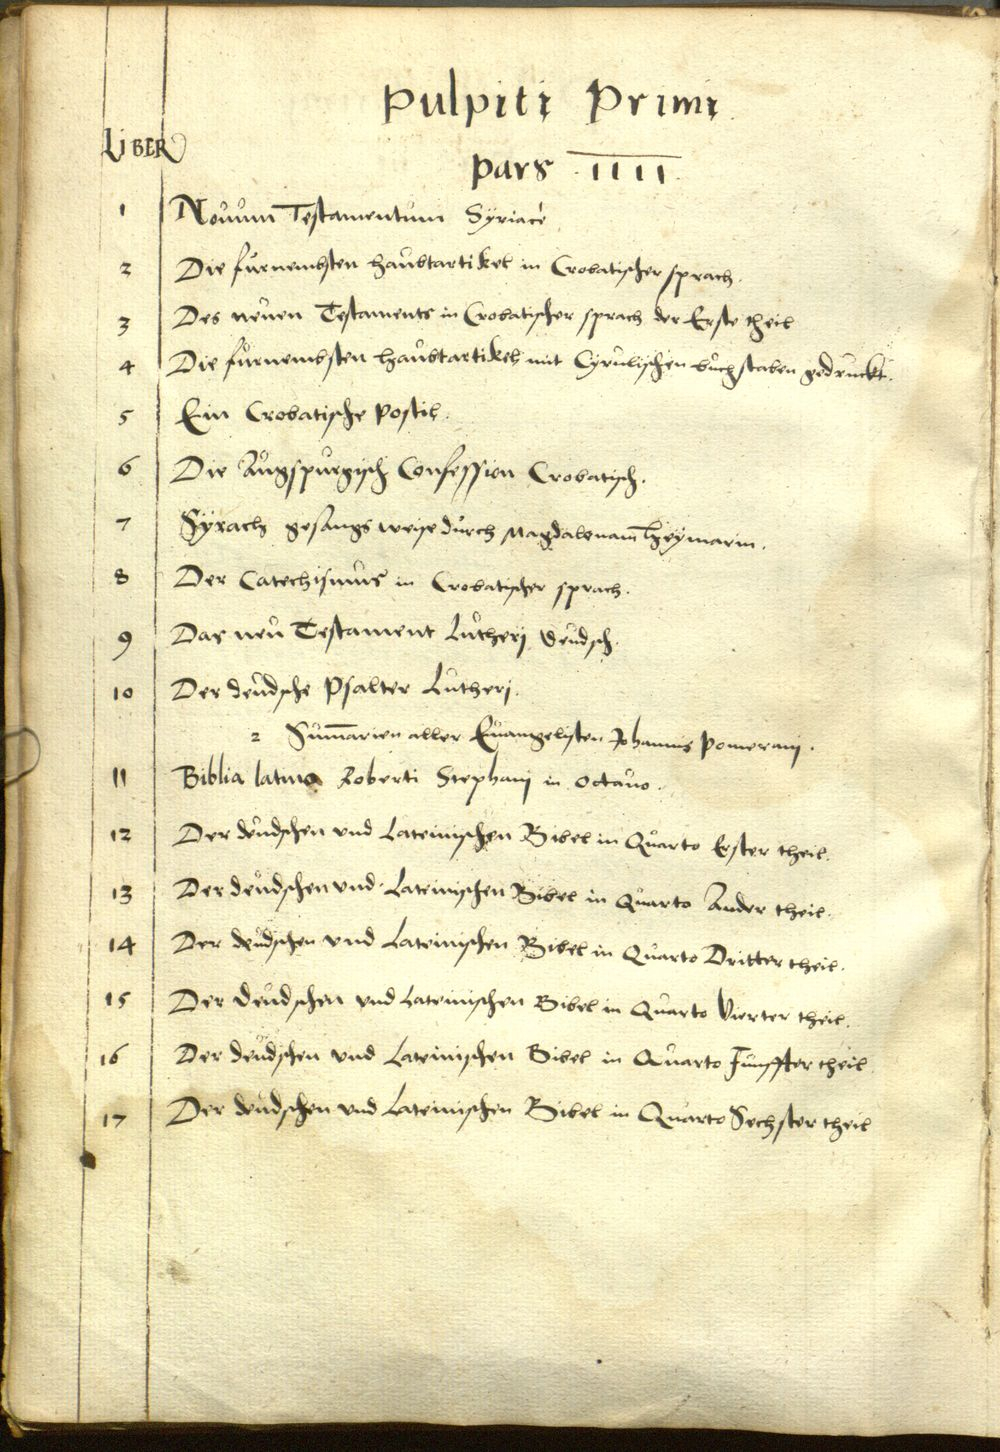 Pulpiti Primi
LiBER
Pars IIII
1 Nouum Testamentum Syriacè
2 Die fürnembsten haubtartikel in Crobatischer sprach.
3 Des neuen Testaments in Crobatischer sprach der Erste theil
4 Die fürnembsten haubtartikel mit Cyrulischen buchstaben gedruckt.
5 Ein Crobatische Postil.
6 Die Augspurgisch Confession Crobatisch.
7 Syrach gesangs weise durch Magdalenam Heymarin.
8 Der Catechismus in Crobatischer sprach.
9 Das neu Testament Lutherj Deudsch.
10 Der deudsche Psalter Lutherj.
2 Sum̄arien aller Euangelisten Johannis Pomeranj.
11 Biblia latina Roberti Stephanj in octauo.
12 Der deudschen vnd Lateinischen Bibel in Quarto Erster theil.
13 Der deudschen vnd Lateinischen Bibel in Quarto Ander theil.
14 Der deudschen vnd Lateinischen Bibel in Quarto Dritter theil.
15 Der deudschen vnd Lateinischen Bibel in Quarto Vierter theil.
16 Der deudschen vnd Lateinischen Bibel in Quarto Funffter theil
17 Der deudschen vnd Lateinischen Bibel in Quarto Sechster theil